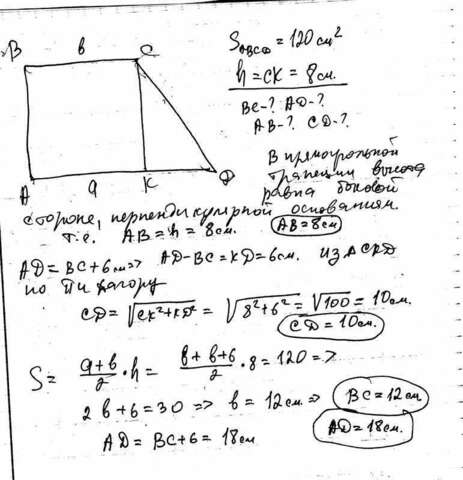 B b C
S_ABCD = 120 см²
h = CK = 8 см.
BC-? AD-?
AB-? CD-?
A a K D
В прямоугольной
трапеции высота
равна боковой
стороне, перпендикулярной основаниям.
т.е. AB = h = 8 см. AB = 8 см
AD = BC + 6 см => AD - BC = KD = 6 см. из ΔCKD
по Пифагору
CD = √CK² + KD² = √8² + 6² = √100 = 10 см.
CD = 10 см.
S = (a+b)/2 · h = (b+b+6)/2 · 8 = 120 =>
2b + 6 = 30 => b = 12 см => BC = 12 см
AD = BC + 6 = 18 см AD = 18 см